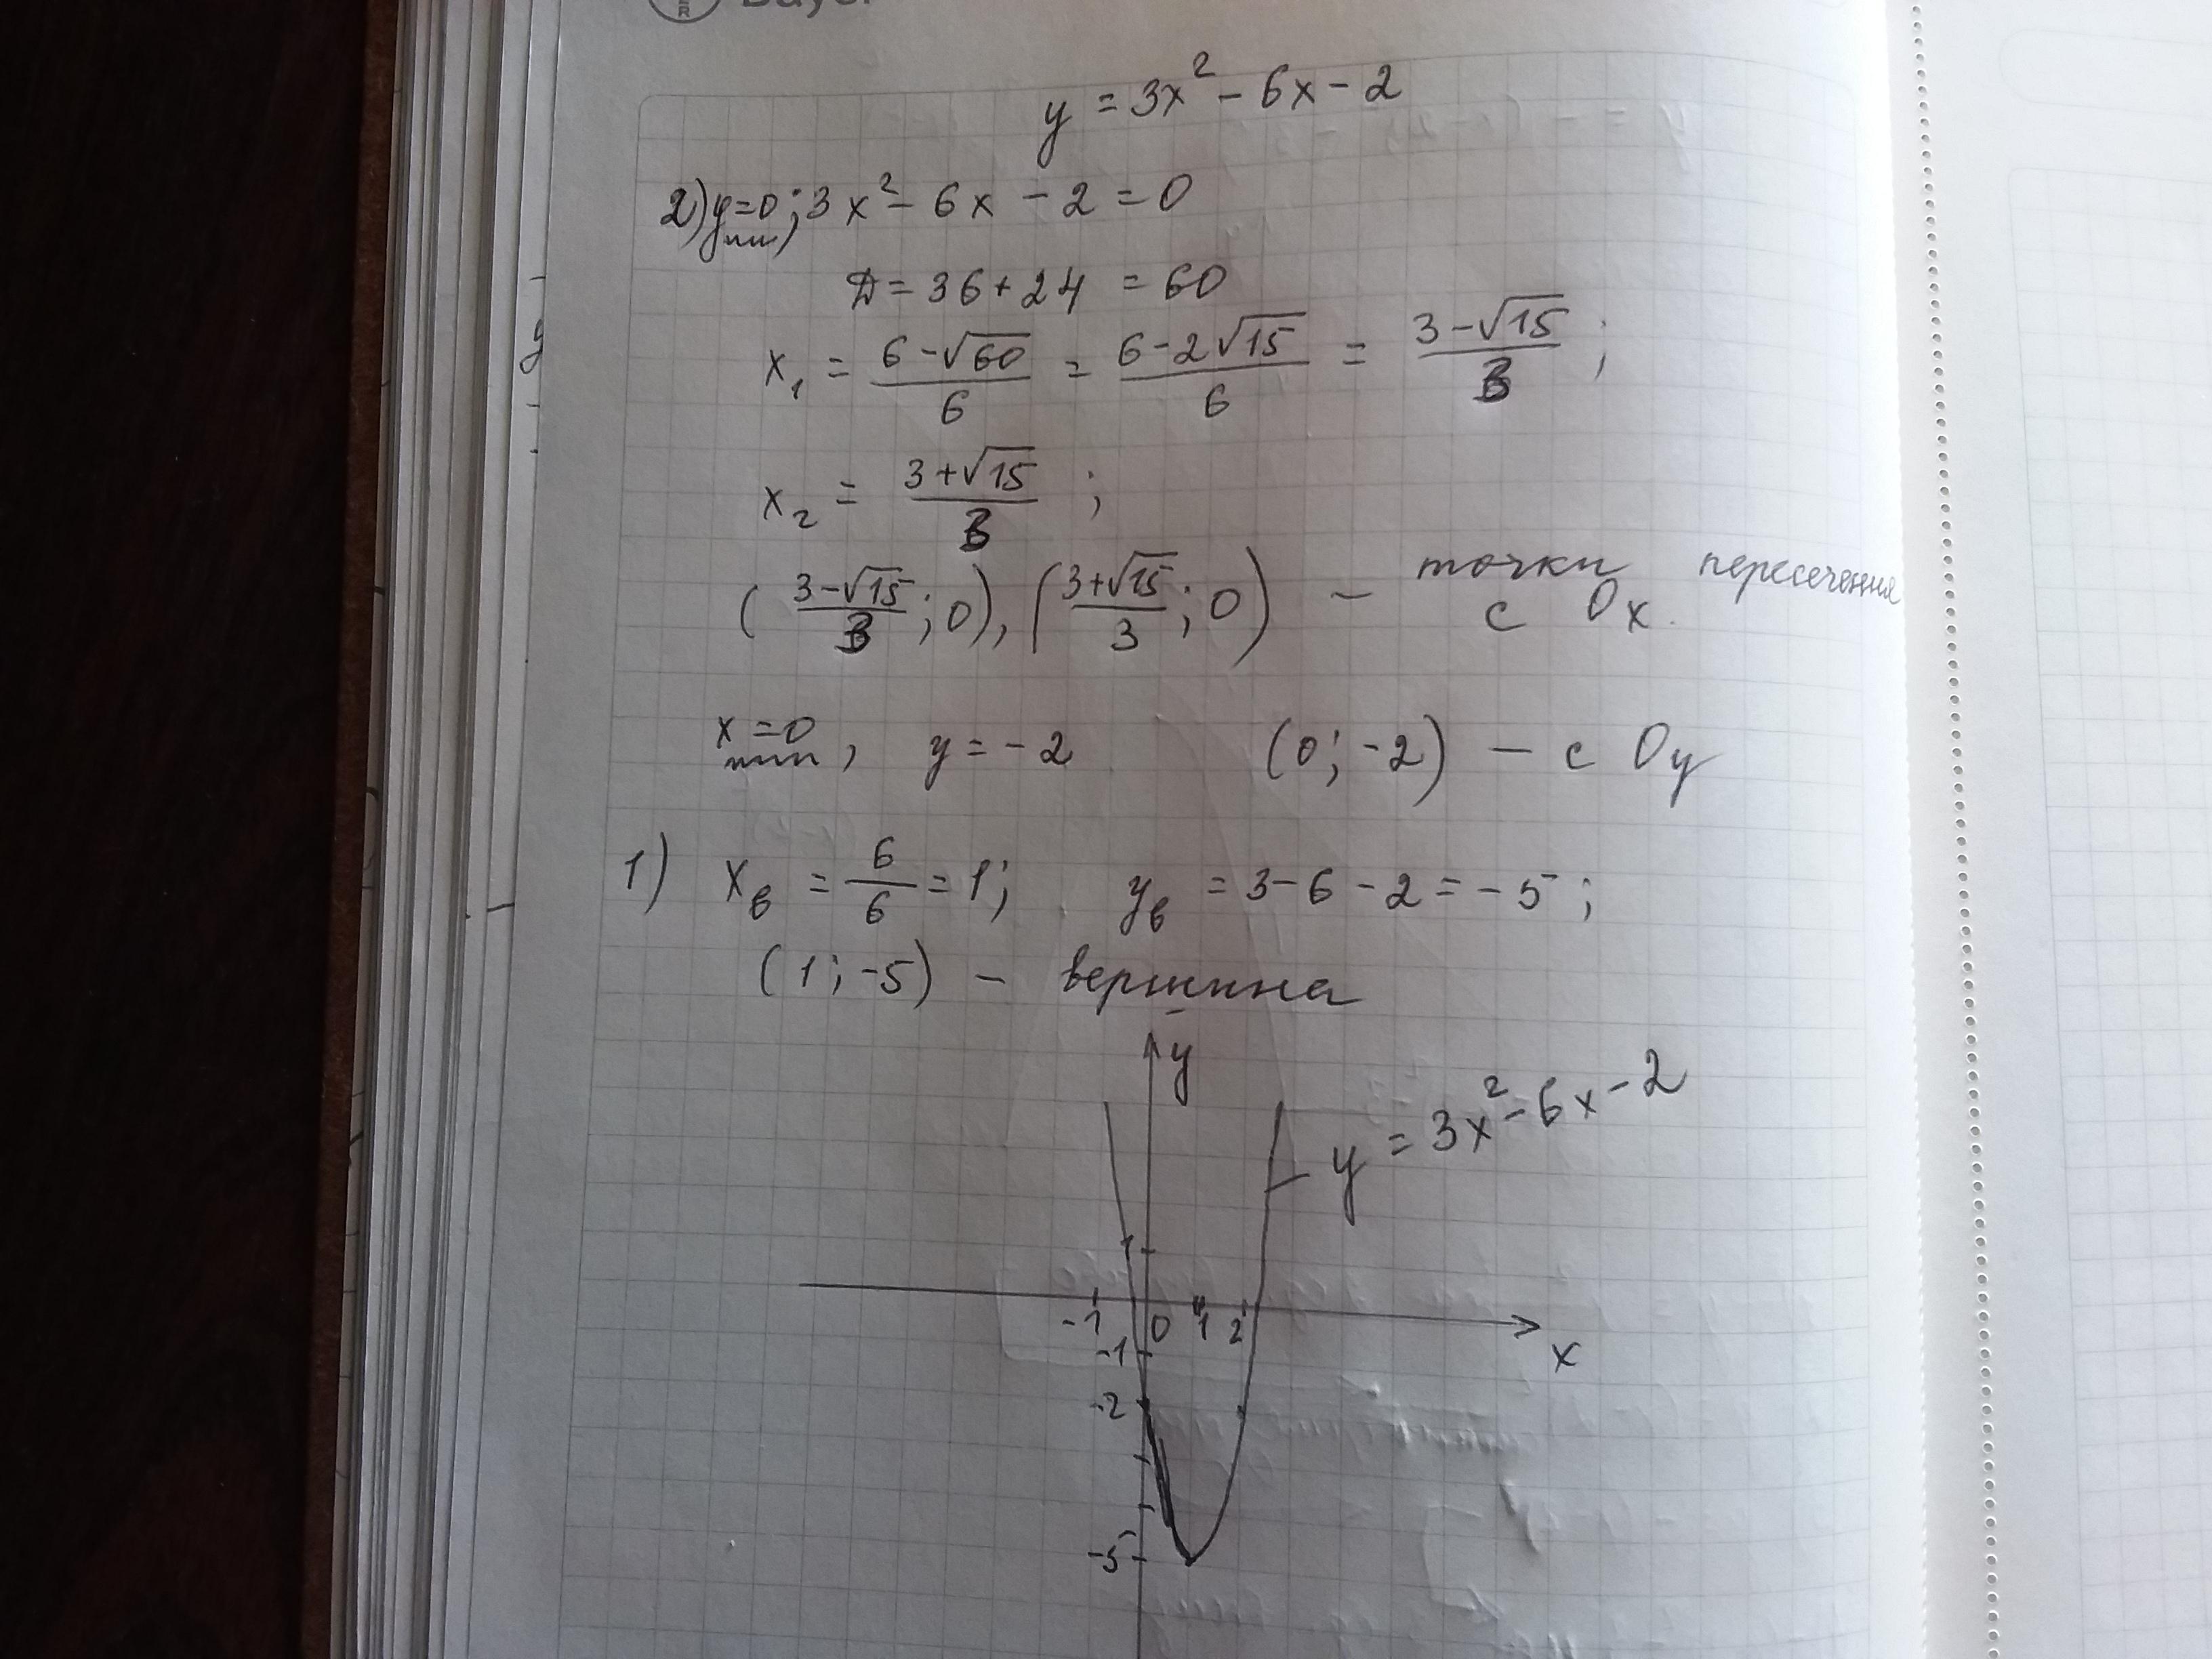 Bayer
y = 3x² - 6x - 2
2) y=0; 3x² - 6x - 2 = 0
D = 36 + 24 = 60
x₁ = (6 - √60)/6 = (6 - 2√15)/6 = (3 - √15)/3 ;
x₂ = (3 + √15)/3 ;
((3 - √15)/3 ; 0), ((3 + √15)/3 ; 0) — точки пересечения
с Ox.
x = 0, y = -2 (0; -2) — с Oy
1) xв = 6/6 = 1; yв = 3 - 6 - 2 = -5;
(1; -5) — вершина
y
y = 3x² - 6x - 2
1
-1 0 1 2
x
-1
-2
-5